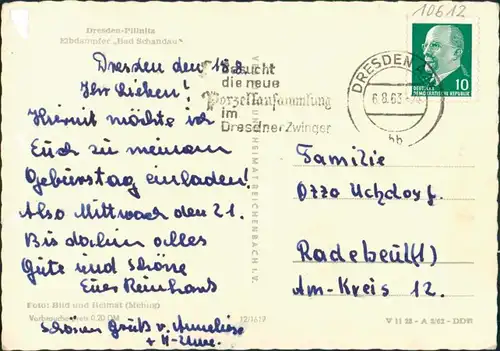 10612
Dresden-Pillnitz
Elbdampfer „Bad Schandau“
Dresden den 18.8.
Ihr Lieben!
Hiermit möchte ich
Euch zu meinem
Geburstag einladen!
Also Mittwoch den 21.
Bis dahin alles
Gute und Schöne
Euer Reinhard
Foto: Bild und Heimat (Mehlig)
Verbraucherpreis 0,20 DM
12/1617
Schönen Gruß v. Anneliese
+ H-Uwe.
BILD UND HEIMAT REICHENBACH I. V.
Besucht
die neue
Porzellansammlung
im
Dresdner Zwinger
DRESDEN
6.8.63
hb
10
DEUTSCHE
DEMOKRATISCHE REPUBLIK
Familie
Otto Uchdorf.
Radebeul(1)
Am-Kreis 12.
V 11 28 - A 5/62 - DDR